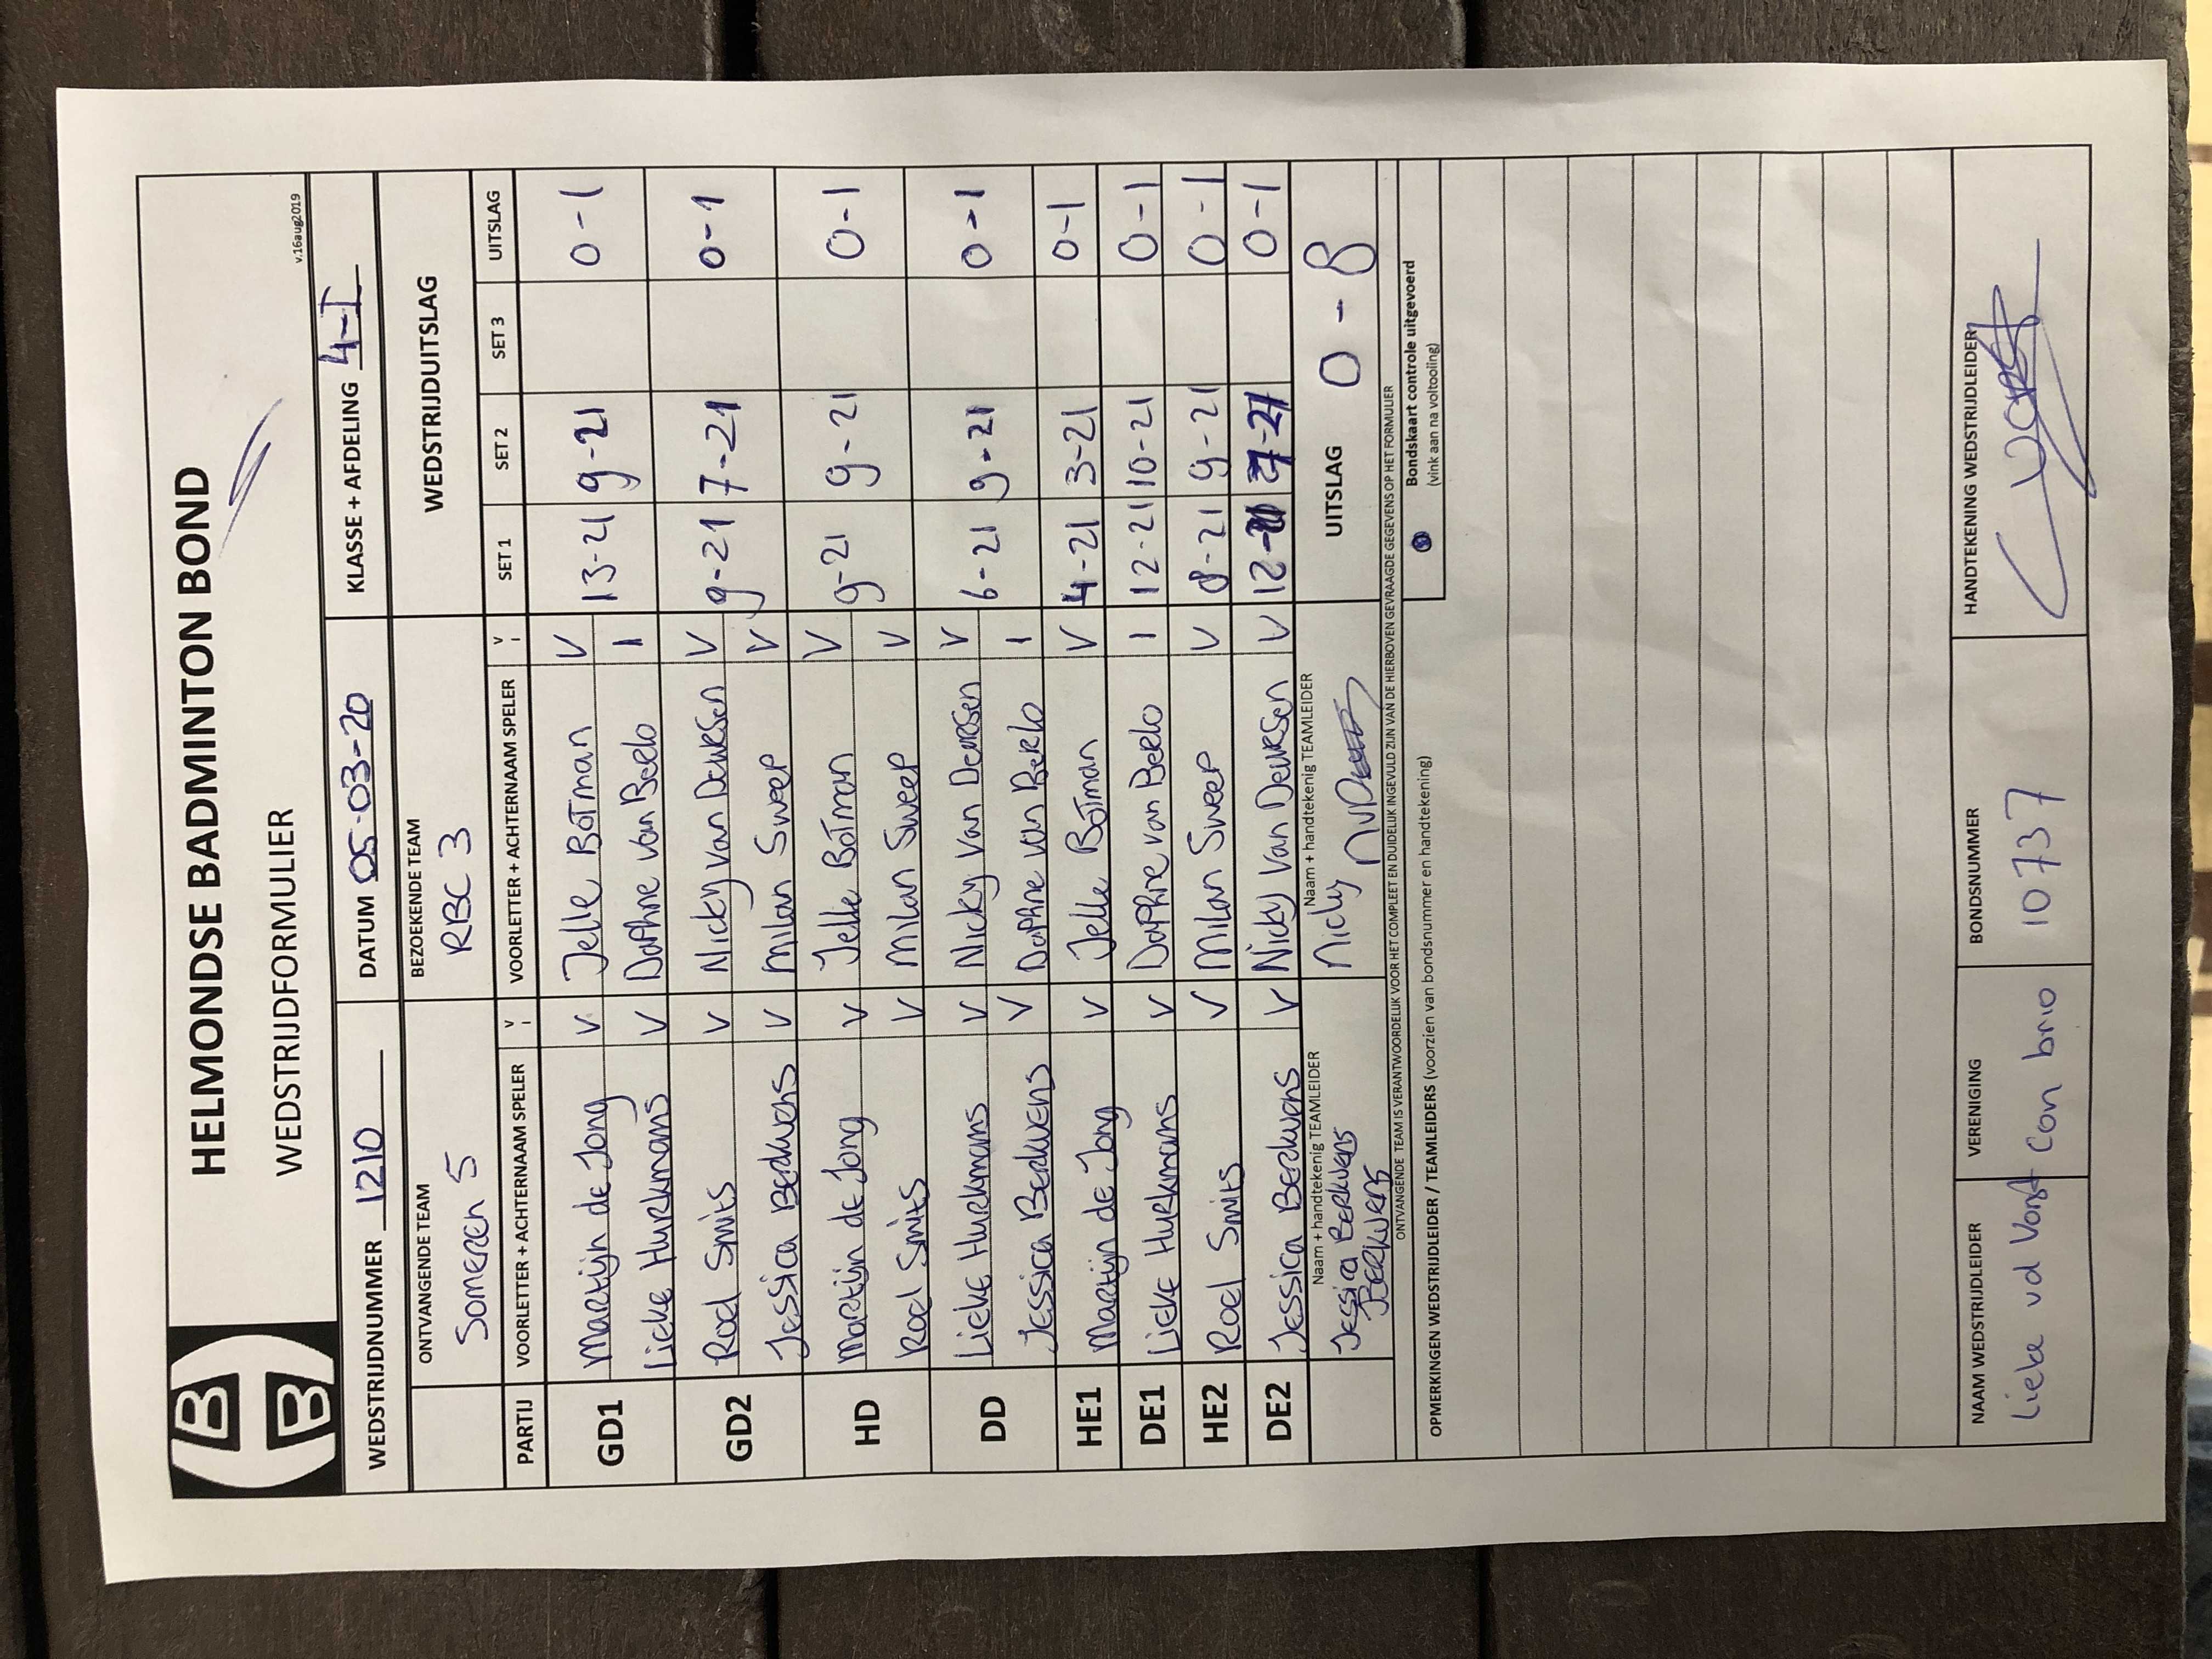 HELMONDSE BADMINTON BOND
WEDSTRIJDFORMULIER
v.16aug2019
WEDSTRIJDNUMMER 1210 DATUM 05-03-20 KLASSE + AFDELING 4-I
ONTVANGENDE TEAM BEZOEKENDE TEAM WEDSTRIJDUITSLAG
Someren 5 RBC 3
PARTIJ VOORLETTER + ACHTERNAAM SPELER V VOORLETTER + ACHTERNAAM SPELER V SET 1 SET 2 SET 3 UITSLAG
GD1 Martijn de Jong V Jelle Botman V 13-21 9-21 0-1
Lieke Hurkmans V Daphne van Berlo I
GD2 Roel Smits V Nicky van Deursen V 9-21 7-21 0-1
Jessica Berkvens V Milan Sweep V
HD Martijn de Jong V Jelle Botman V 9-21 9-21 0-1
Roel Smits V Milan Sweep V
DD Lieke Hurkmans V Nicky van Deursen V 6-21 9-21 0-1
Jessica Berkvens V Daphne van Berlo I
HE1 Martijn de Jong V Jelle Botman V 4-21 3-21 0-1
DE1 Lieke Hurkmans V Daphne van Berlo I 12-21 10-21 0-1
HE2 Roel Smits V Milan Sweep V 8-21 9-21 0-1
DE2 Jessica Berkvens V Nicky van Deursen V 12- 0-1
Naam + handtekenig TEAMLEIDER Naam + handtekenig TEAMLEIDER UITSLAG 0-8
Jessica Berkvens Nicky
JBerkvens
ONTVANGENDE TEAM IS VERANTWOORDELIJK VOOR HET COMPLEET EN DUIDELIJK INGEVULD ZIJN VAN DE HIERBOVEN GEVRAAGDE GEGEVENS OP HET FORMULIER
OPMERKINGEN WEDSTRIJDLEIDER / TEAMLEIDERS (voorzien van bondsnummer en handtekening)
Bondskaart controle uitgevoerd
(vink aan na voltooling)
NAAM WEDSTRIJDLEIDER VERENIGING BONDSNUMMER HANDTEKENING WEDSTRIJDLEIDER
Lieke vd Vorst Con brio 10737